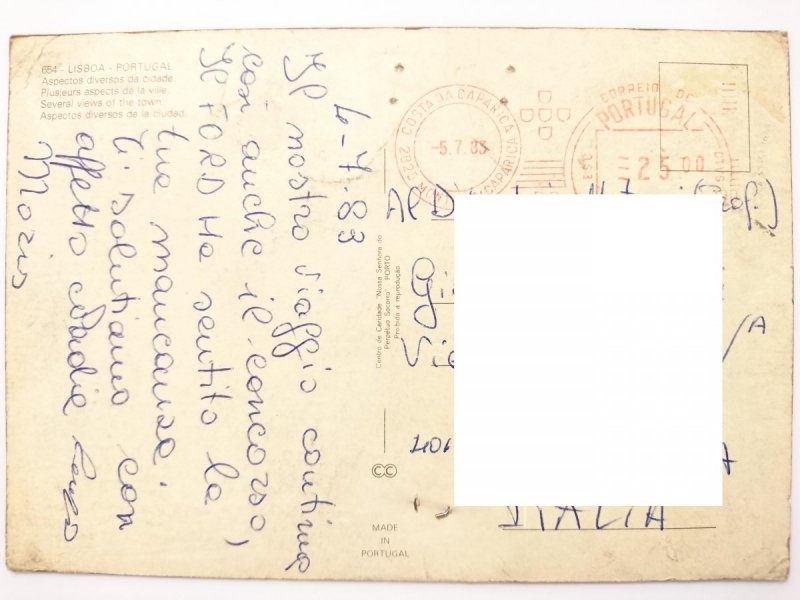 684 - LISBOA - PORTUGAL
Aspectos diversos da cidade.
Plusieurs aspects de la ville.
Several views of the town.
Aspectos diversos de la ciudad.
4-7-83
Il nostro viaggio continua
così anche il concorso,
il FORD ha sentito la
tue mancanze.
Ti salutiamo con
affetto
Moris
Centro de Caridade "Nossa Senhora do
Perpétuo Socorro" PORTO
Proibida a reprodução
CC
MADE
IN
PORTUGAL
2825 COSTA DA CAPARICA
-5.7.83
CAPARICA
CORREIO DE
PORTUGAL
25 00
Al
Via
/A
ITALIA